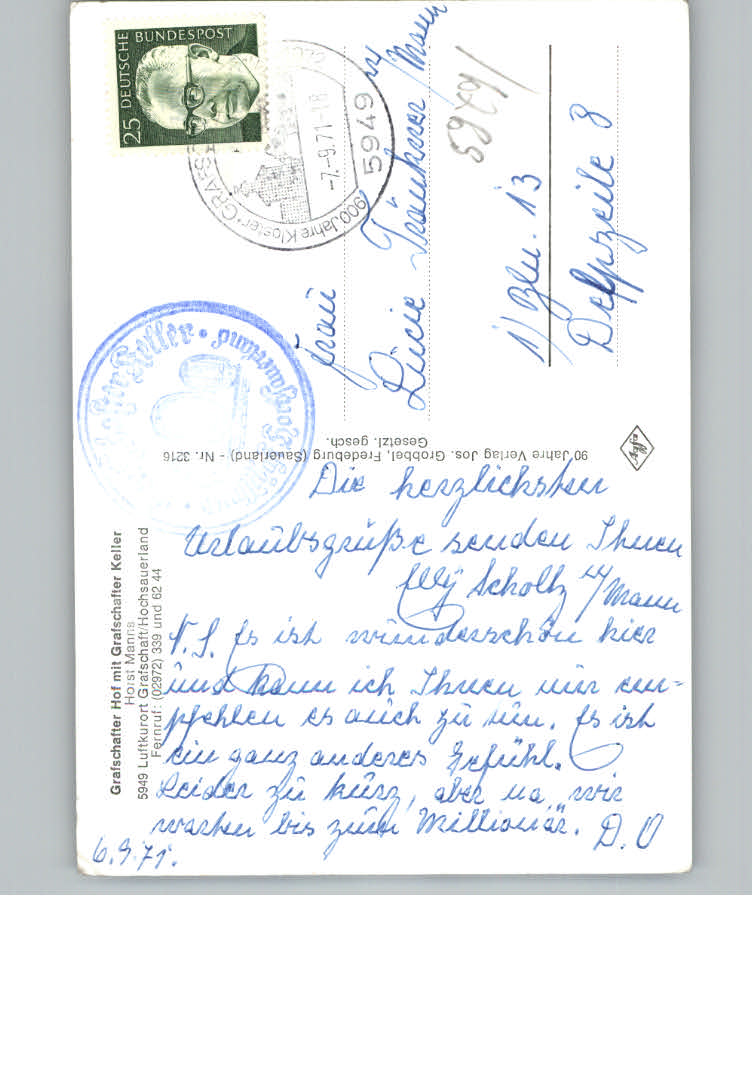 DEUTSCHE BUNDESPOST
25
5949
-7.-9.71-18
900 Jahre Kloster GRAFSCH
5979/
Frau
Lücie Tränkner
1/ Bln. 13
Delpzeile 8
Keller
90 Jahre Verlag Jos. Grobbel, Fredeburg (Sauerland) - Nr. 3216
Gesetzl. gesch.
Agfa
Grafschafter Hof mit Grafschafter Keller
Horst Manns
5949 Luftkurort Grafschaft/Hochsauerland
Fernruf: (02972) 339 und 62 44
Die herzlichsten
Urlaubsgrüße senden Ihnen
Elly Scholtz u/Mann
N.S. Es ist wünderschön hier
und kann ich Ihnen nür em-
pfehlen es aüch zü tün. Es ist
ein ganz anderes Gefühl.
Leider zü kürz, aber na, wir
warten bis züm Millionär. D.O
6.9.71.